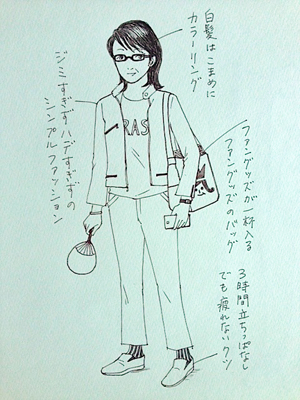 白髪はこまめに
カラーリング
ジミすぎずハデすぎずの
シンプルファッション
RAS
ファングッズが一杯入る
ファングッズのバッグ
3時間立ちっぱなし
でも疲れないクツ